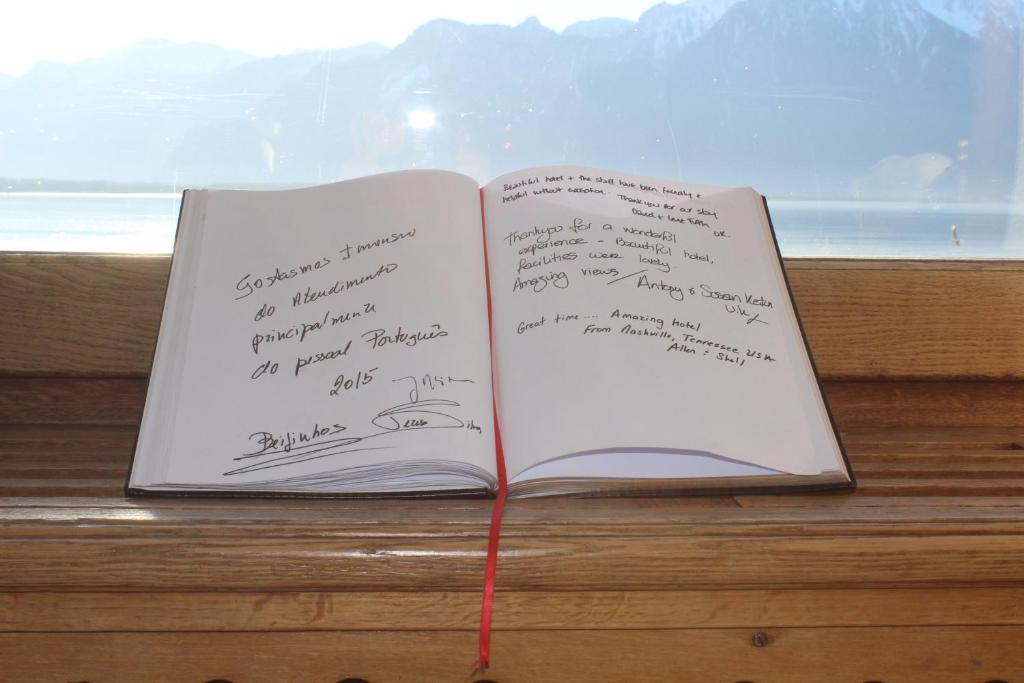 Gostasmos Imensso
do Atendimento
principalmente
do pessoal Português
2015
Beijinhos
Beautiful hotel + the staff have been friendly +
helpful without exception. Thank you for our stay
UK.
Thankyou for a wonderful
experience - Beautiful hotel,
facilities were lovely.
Amazing views / Antony & Susan
U.K
Great time .... Amazing hotel
From Nashville, Tennessee USA
Allen + Shell